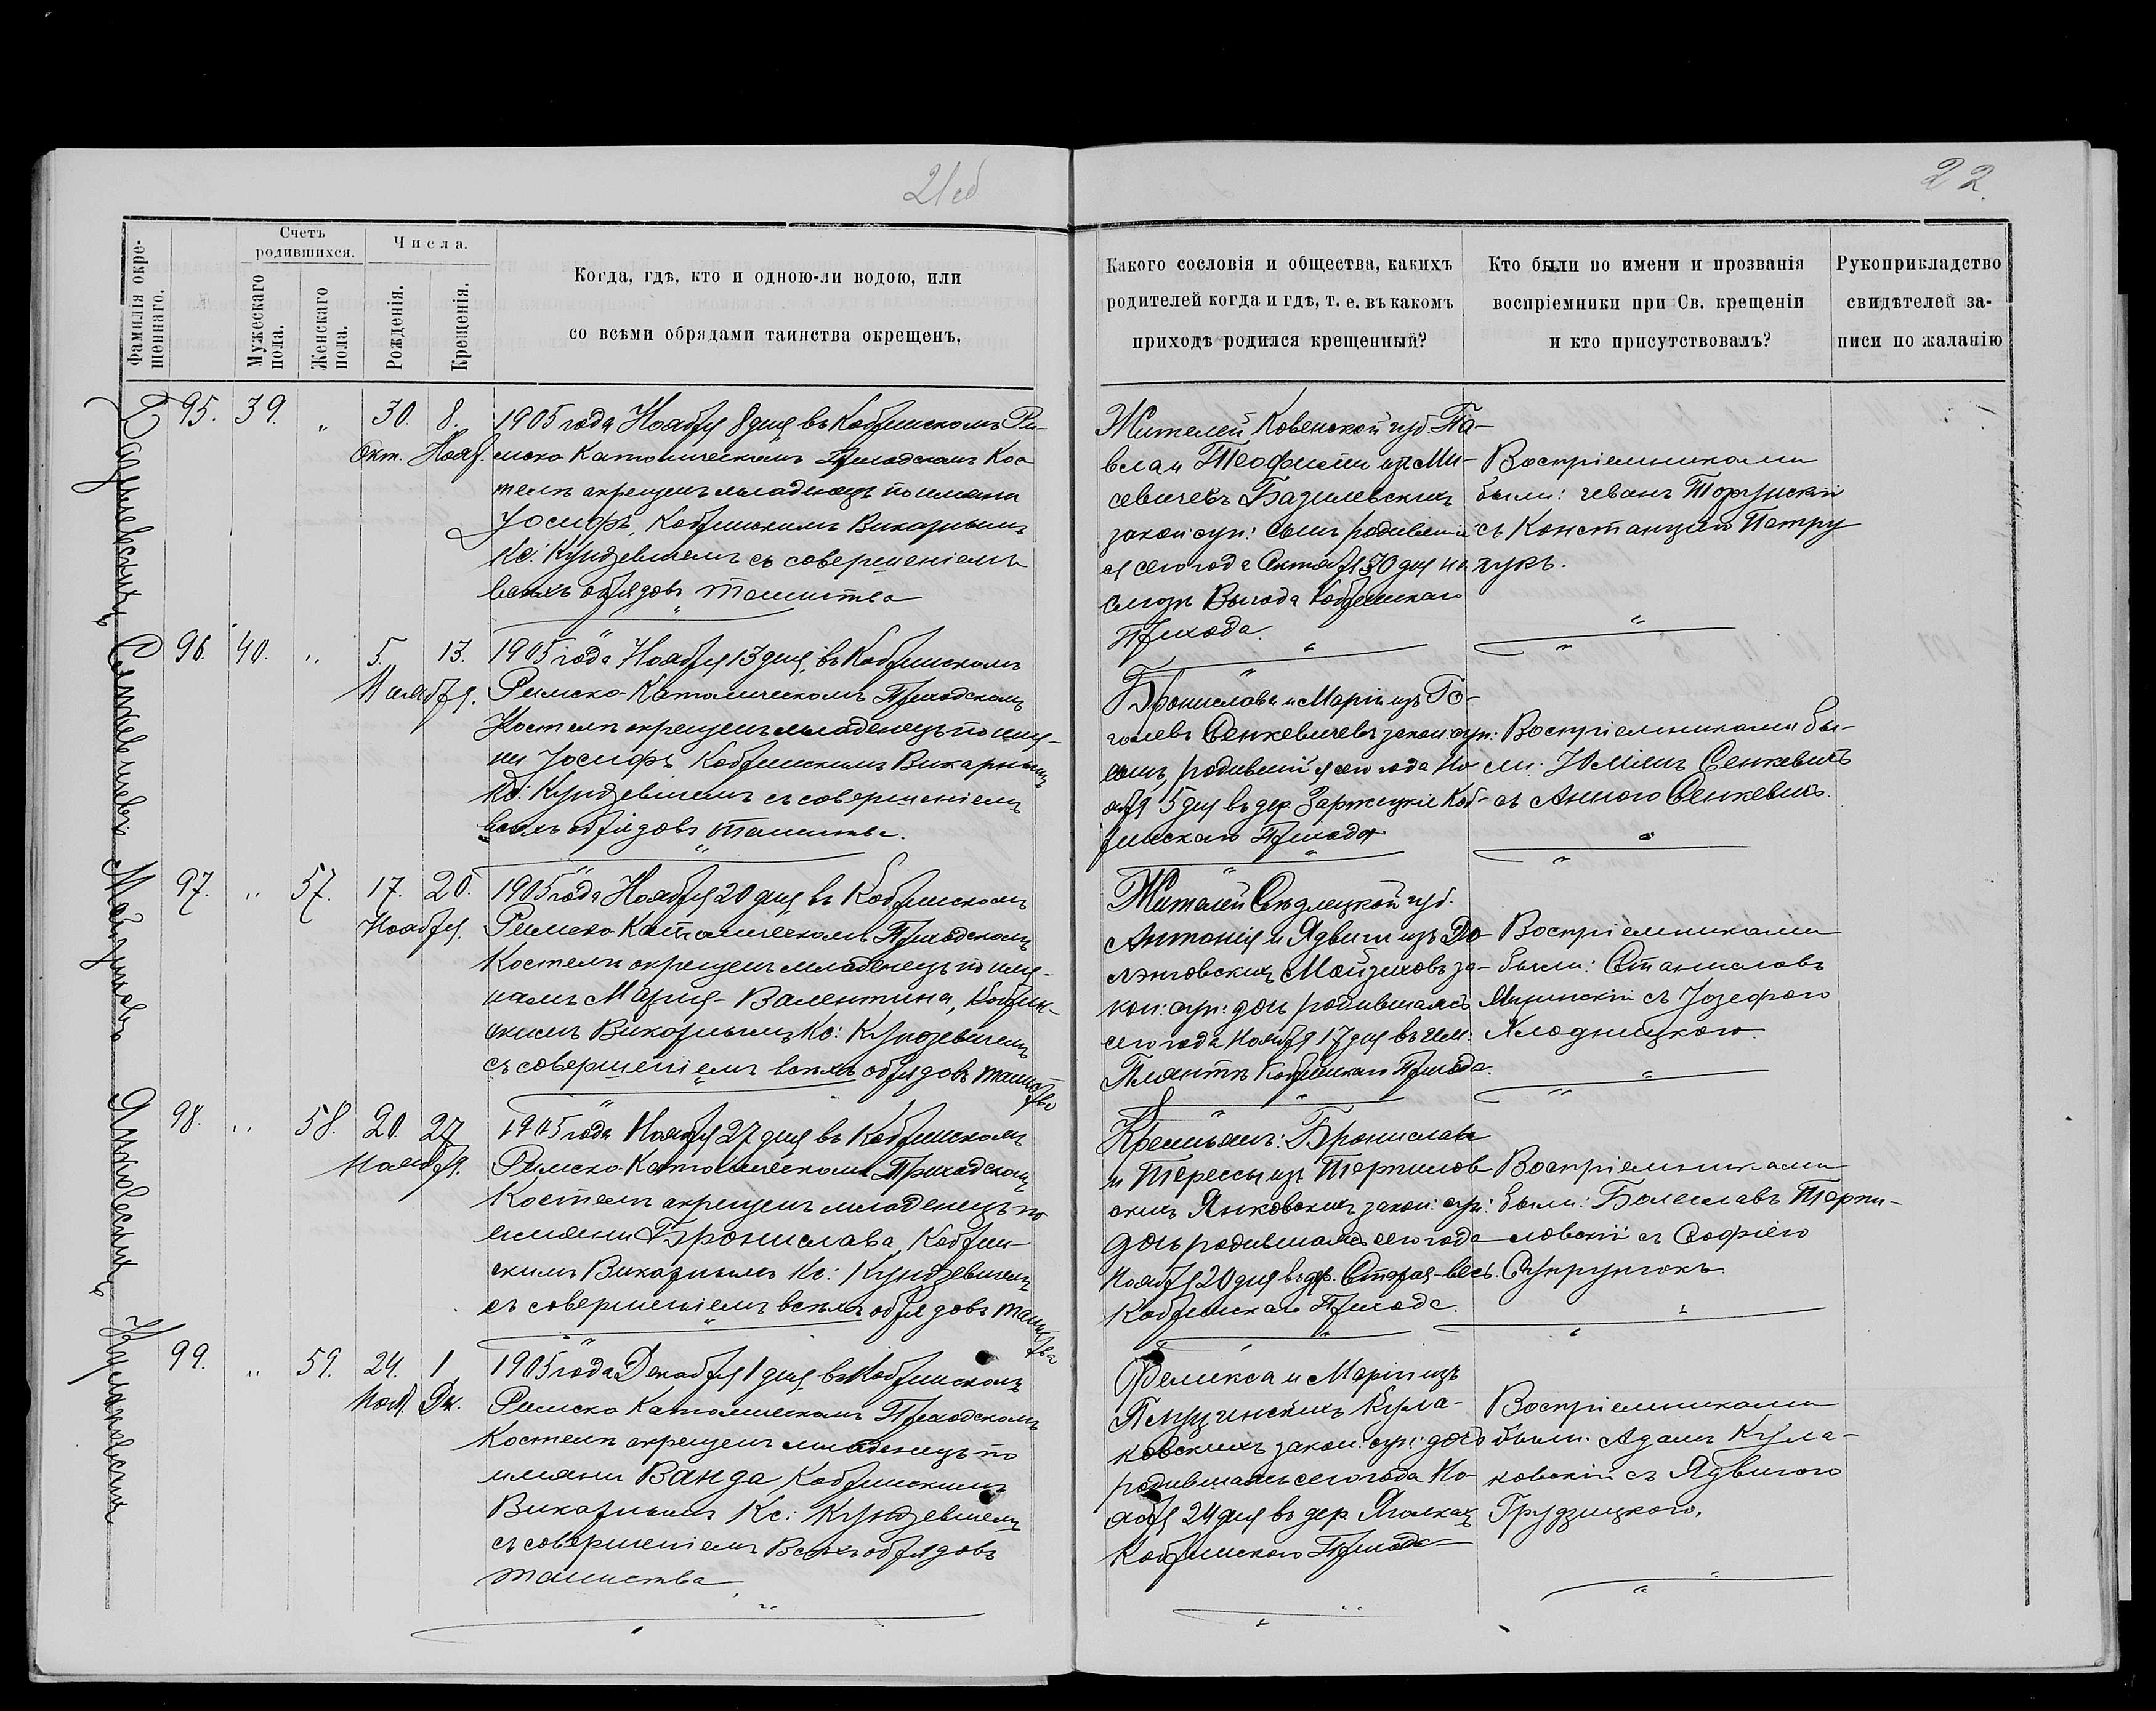 21об
22.
Фамилія окре-
шеннаго.
Счетъ
родившихся.
Мужескаго
пола.
Женскаго
пола.
Числа.
Рожденія.
Крещенія.
Когда, гдѣ, кто и одною-ли водою, или
со всѣми обрядами таинства окрещенъ,
Какого сословія и общества, какихъ
родителей когда и гдѣ, т. е. въ какомъ
приходѣ родился крещенный?
Кто были по имени и прозванія
воспріемники при Св. крещеніи
и кто присутствовалъ?
Рукоприкладство
свидѣтелей за-
писи по жаланію
Базилевскихъ
95. 39. " 30. 8.
Окт. Нояб.
1905 года Ноября 8 дня въ Кобринскомъ Ри-
мско Католическомъ Приходскомъ Кос-
телѣ окрещенъ младенецъ по имени
Іосифъ, Кобринскимъ Викарнымъ
Кс: Кундзевичемъ съ совершеніемъ
всѣхъ обрядовъ таинства
Жителей Ковенской губ. Па-
вла и Теофили изъ Ми-
севичевъ Базилевскихъ
закон: супр: сынъ родивший
ся сего года Октября 30 дня на
Выгода Кобринскаго
Прихода.
Воспріемниками
были: Иванъ
съ Констанціею Петру
чукъ.
Сенкевичевъ
96. 40. " 5. 13.
Ноября.
1905 года Ноября 13 дня въ Кобринскомъ
Римско-Католическомъ Приходскомъ
Костелѣ окрещенъ младенецъ по име-
ни Іосифъ Кобринскимъ Викарнымъ
Кс: Кундзевичемъ съ совершеніемъ
всѣхъ обрядовъ таинства.
Бронислава и Маріи изъ Го-
голевъ Сенкевичевъ закон: супр:
сынъ, родившийся сего года Но-
ября 5 дня въ дер. Заржецкіе Коб-
ринскаго Прихода
Воспріемниками бы-
ли: Юліянъ Сенкевичъ
съ Анною Сенкевичъ.
97. " 57. 17. 20.
Ноября.
1905 года Ноября 20 дня въ Кобринскомъ
Римско Католическомъ Приходскомъ
Костелѣ окрещенъ младенецъ по име-
намъ Марія-Валентина, Кобрин-
скимъ Викарнымъ Кс: Кундзевичемъ
съ совершеніемъ всѣхъ обрядовъ таинства
Жителей Сѣдлецкой губ.
Антонія и Ядвиги изъ До-
за-
кон: супр: дочь родившаяся
сего года Ноября 17 дня въ им.
Плянтѣ Кобринскаго Прихода.
Воспріемниками
были: Станиславъ
съ Іозефою
Хлодницкою.
Янковскихъ
98. " 58. 20. 27
Ноября.
1905 года Ноября 27 дня въ Кобринскомъ
Римско-Католическомъ Приходскомъ
Костелѣ окрещенъ младенецъ по
имени Бронислава, Кобрин-
скимъ Викарнымъ Кс: Кундзевичемъ
съ совершеніемъ всѣхъ обрядовъ таинства
Крестьянъ: Бронислава
и Терессы изъ Терпилов-
скихъ Янковскихъ закон: супр:
дочь родившаяся сего года
Ноября 20 дня въ дер. Старая-весь.
Кобринскаго Прихода.
Воспріемниками
были: Болеславъ Терпи-
ловскій съ Софіею
Супрунюкъ.
Кулаковскихъ
99. " 59. 24. 1
Нояб. Дк.
1905 года Декабря 1 дня въ Кобринскомъ
Римско Католическомъ Приходскомъ
Костелѣ окрещенъ младенецъ по
имени Ванда Кобринскимъ
Викарнымъ Кс: Кундзевичемъ
съ совершеніемъ Всѣхъ обрядовъ
таинства
Феликса и Маріи изъ
Кула-
ковскихъ закон: супр: дочь
родившаяся сего года Но-
ября 24 дня въ дер. Яголкахъ
Кобринскаго Прихода
Воспріемниками
были: Адамъ Кула-
ковскій съ Ядвигою
Грудзицкою.